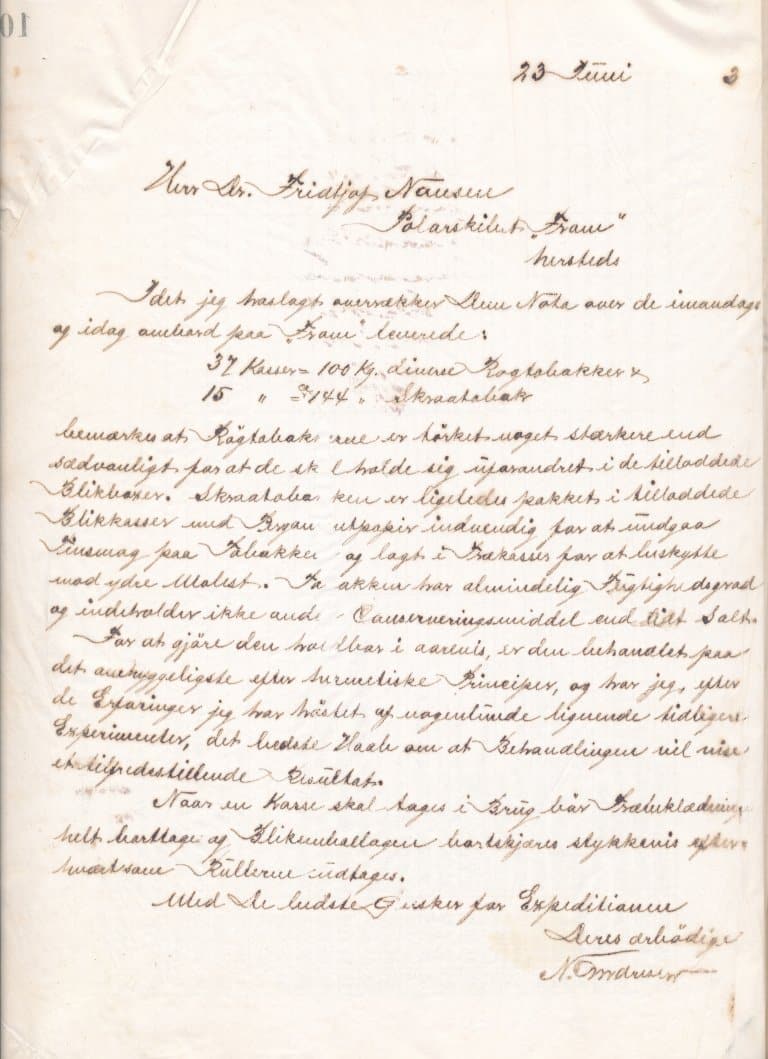 101
23 Juni 3
Herr Dr. Fridtjof Nansen
Polarskibet „Fram"
hersteds
Idet jeg hoslagt overrækker Dem Nota over de imandags
og idag ombord paa „Fram" leverede:
37 Kasser = 100 Kg. diverse Røgtobakker &
15 " = 144 " Skraatobak
bemærkes at Rögtobakkerne er törket noget stærkere end
sædvanligt for at de skal holde sig uforandret i de tilloddede
Blikboxer. Skraatobakken er ligeledes pakket i tilloddede
Blikkasser med Pergamentpapir indvendig for at undgaa
Tinsmag paa Tobakken og lagt i Trækasser for at beskytte
mod ydre Molest. Tobakken har almindelig Fugtighedsgrad
og indeholder ikke andet Conserveringsmiddel end lidt Salt.
For at gjöre den holdbar i aarevis, er den behandlet paa
det omhyggeligste efter hermetiske Principer, og har jeg, efter
de Erfaringer jeg har höstet af nogenlunde lignende tidligere
Experimenter, det bedste Haab om at Behandlingen vil vise
et tilfredsstillende Resultat.
Naar en Kasse skal tages i Brug bör Træbeklædningen
helt borttages og Blikemballagen bortskjæres stykkevis efter-
hvært som Rullerne udtages.
Med De bedste Önsker for Expeditionen
Deres ærbödige
N. Andresen